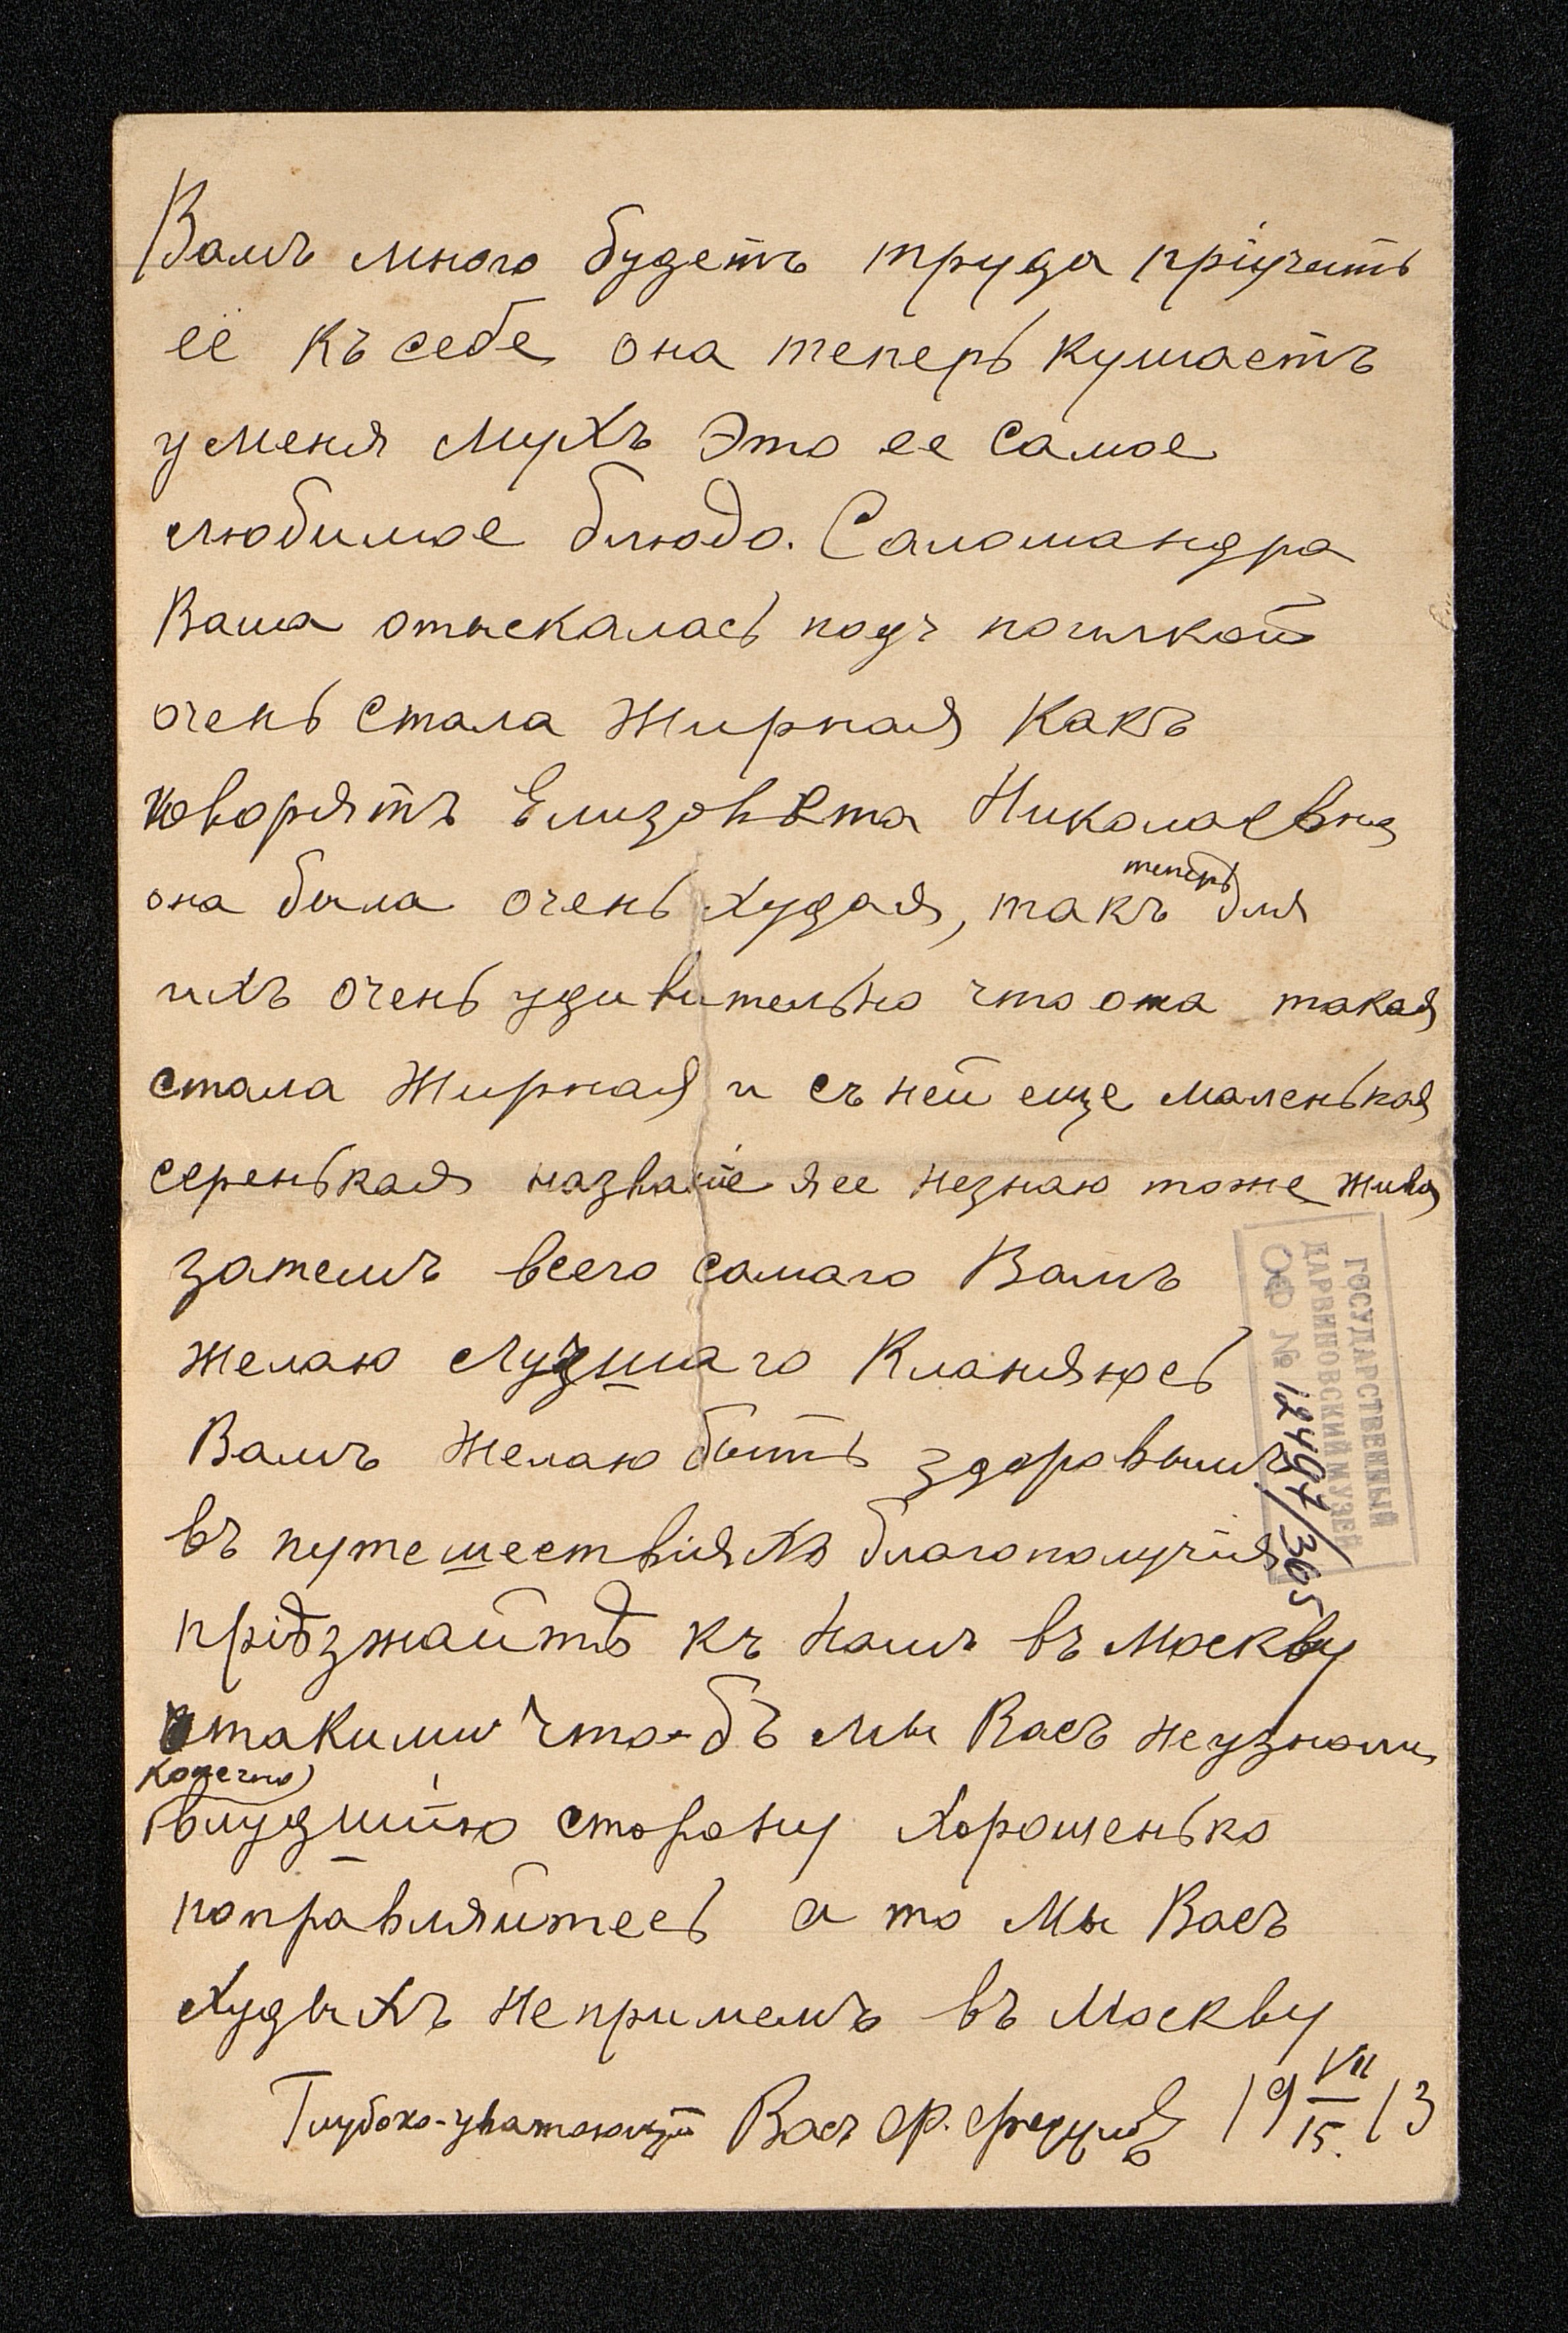 Вамъ много будетъ труда пріучить
ее къ себе она теперь кушаетъ
у меня Мухъ Это ее самое
любимое блюдо. Саломандра
Ваша отыскалась подъ
очень стала Жирная какъ
говорятъ Елизовѣта Николаевна
она была очень худая, такъ теперь для
ихъ очень удивительно что она такая
стала Жирная и съ ней еще маленькая
серенькая названіе я ее незнаю тоже жива
затемъ всего самаго Вамъ
желаю Лучшаго Кланяюсь
Вамъ желаю быть здоровымъ
въ путешествіяхъ благополучія
пріѣзжайтѣ къ Намъ въ Москву
такими что-бъ мы Васъ неузнали
Конечно
влудшию сторону Хорошенько
поправляйтесь а то Мы Васъ
Худыхъ непримемъ въ Москву
Глубоко-уважающій Васъ Ф. Федуловъ 19 VII/15. 13
ГОСУДАРСТВЕННЫЙ
ДАРВИНОВСКИЙ МУЗЕЙ
ОФ № 12497/365